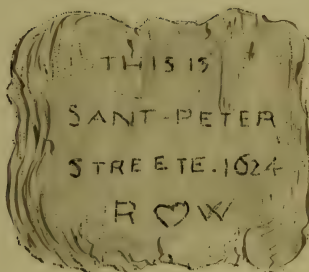 THIS IS
SANT-PETER
STREETE.1624
R ♡ W